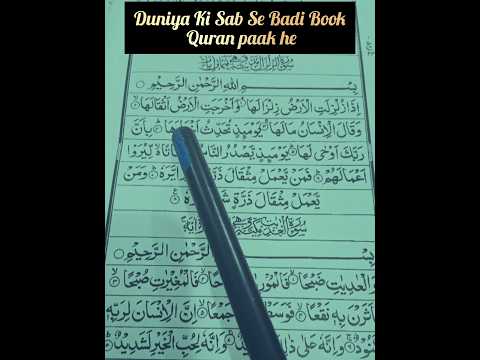 Duniya Ki Sab Se Badi Book
Quran paak he
بِسْمِ اللهِ الرَّحْمٰنِ الرَّحِيْمِ
اِذَا زُلْزِلَتِ الْاَرْضُ زِلْزَالَهَا وَاَخْرَجَتِ الْاَرْضُ اَثْقَالَهَا
وَقَالَ الْاِنْسَانُ مَا لَهَا يَوْمَئِذٍ تُحَدِّثُ بِاَنَّ
رَبَّكَ اَوْحٰى لَهَا يَوْمَئِذٍ يَّصْدُرُ النَّاسُ لِّيُرَوْا
اَعْمَالَهُمْ فَمَنْ يَّعْمَلْ مِثْقَالَ ذَرَّةٍ يَّرَهٗ وَمَنْ
يَّعْمَلْ مِثْقَالَ ذَرَّةٍ
بِسْمِ اللهِ الرَّحْمٰنِ الرَّحِيْمِ
وَالْعٰدِيٰتِ ضَبْحًا فَالْمُوْرِيٰتِ فَالْمُغِيْرٰتِ صُبْحًا
فَاَثَرْنَ بِهٖ نَقْعًا فَوَسَطْنَ جَمْعًا اِنَّ الْاِنْسَانَ لِرَبِّهٖ
وَاِنَّهٗ عَلٰى وَاِنَّهٗ لِحُبِّ الْخَيْرِ لَشَدِيْدٌ